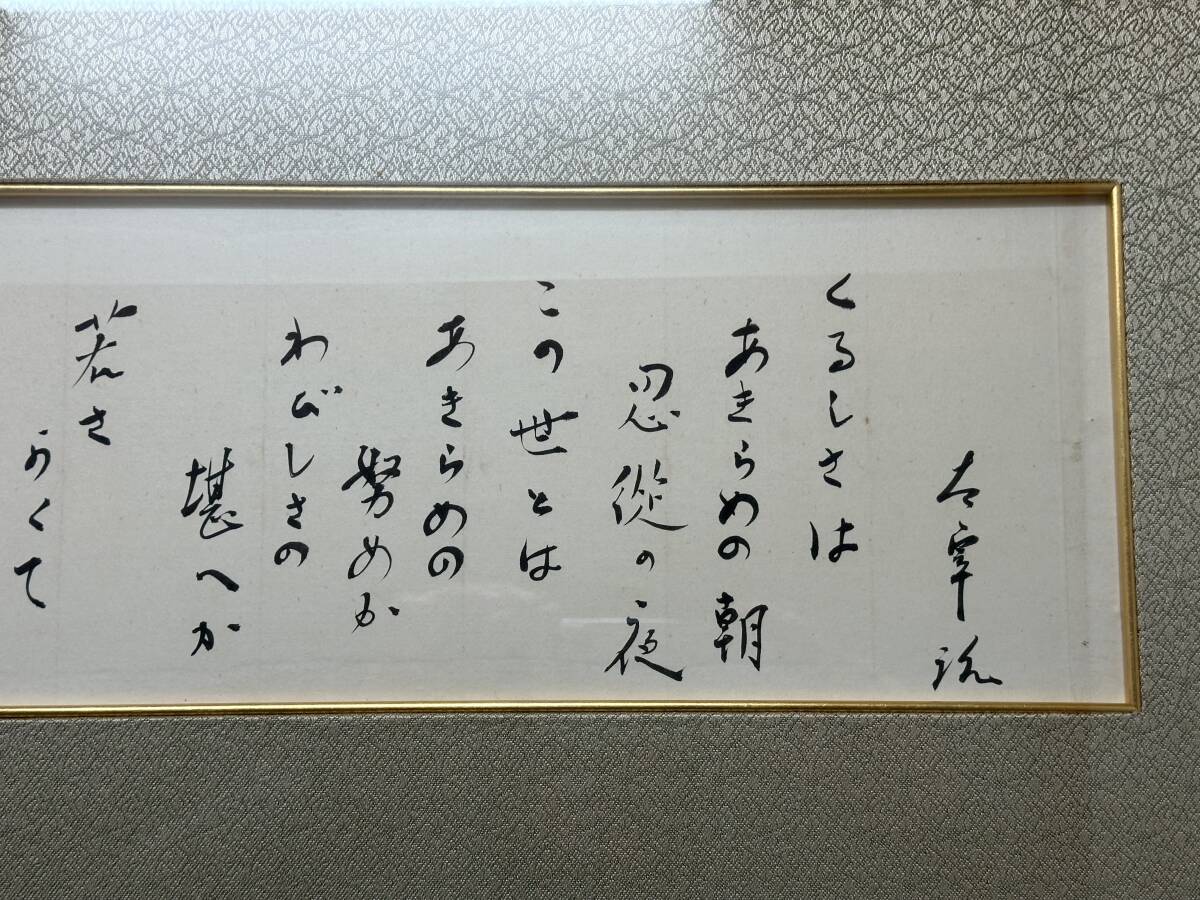 太宰治
くるしさは
あきらめの朝
忍從の夜
この世とは
あきらめの
努めか
わびしさの
堪へか
若さ
かくて